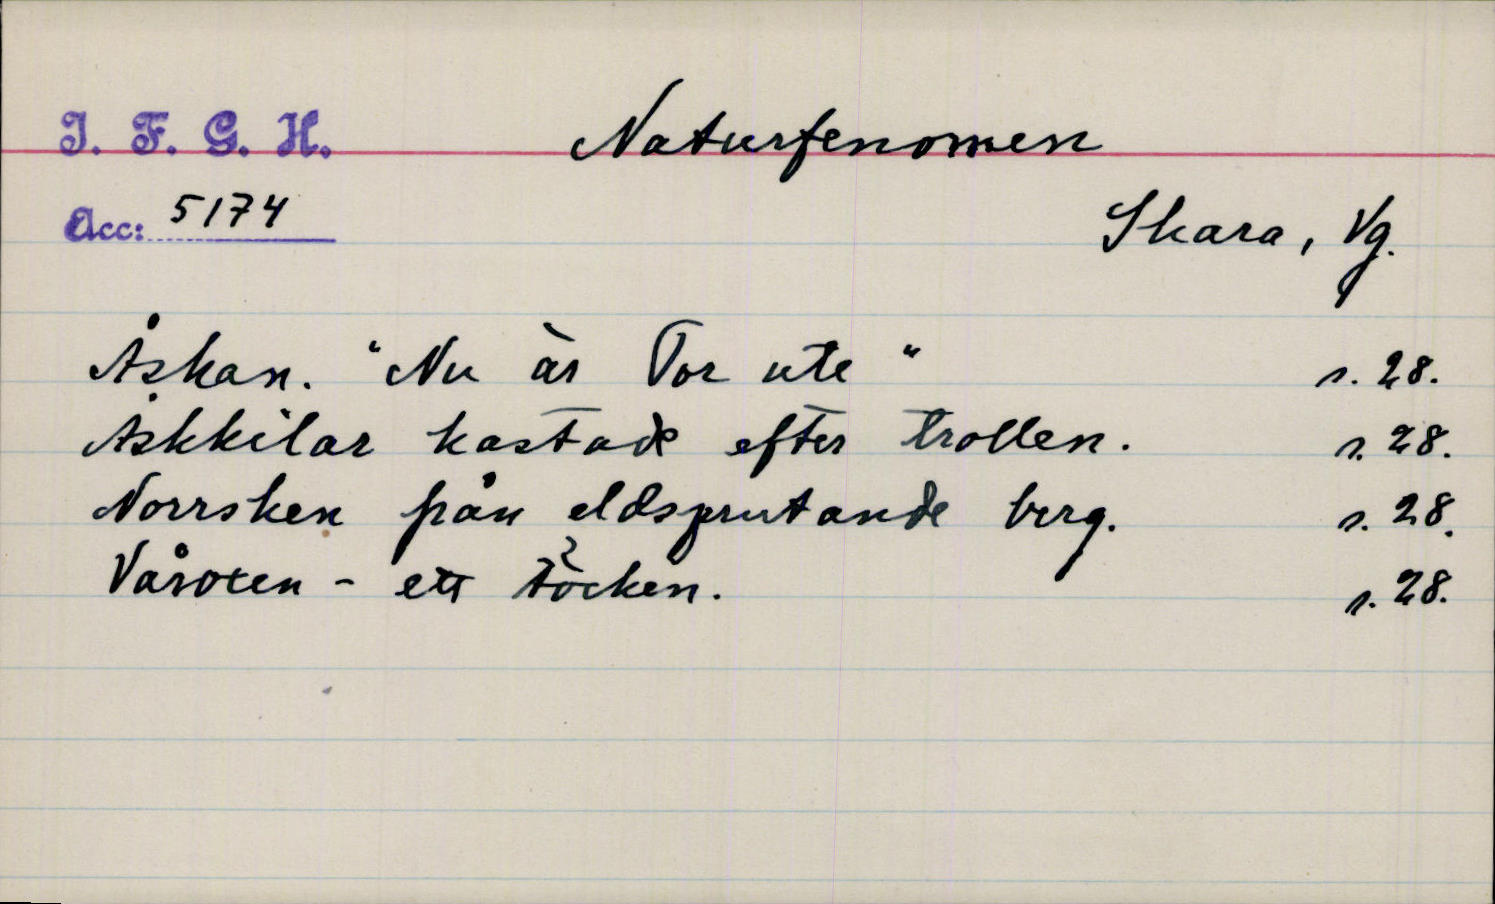 I. F. G. H.
Naturfenomen
Acc: 5174
Skara, Vg.
Åskan. "Nu är Tor ute" s. 28.
Åskkilar kastade efter trollen. s. 28.
Norrsken från eldsprutande berg. s. 28.
Våroxen - ett töcken. s. 28.